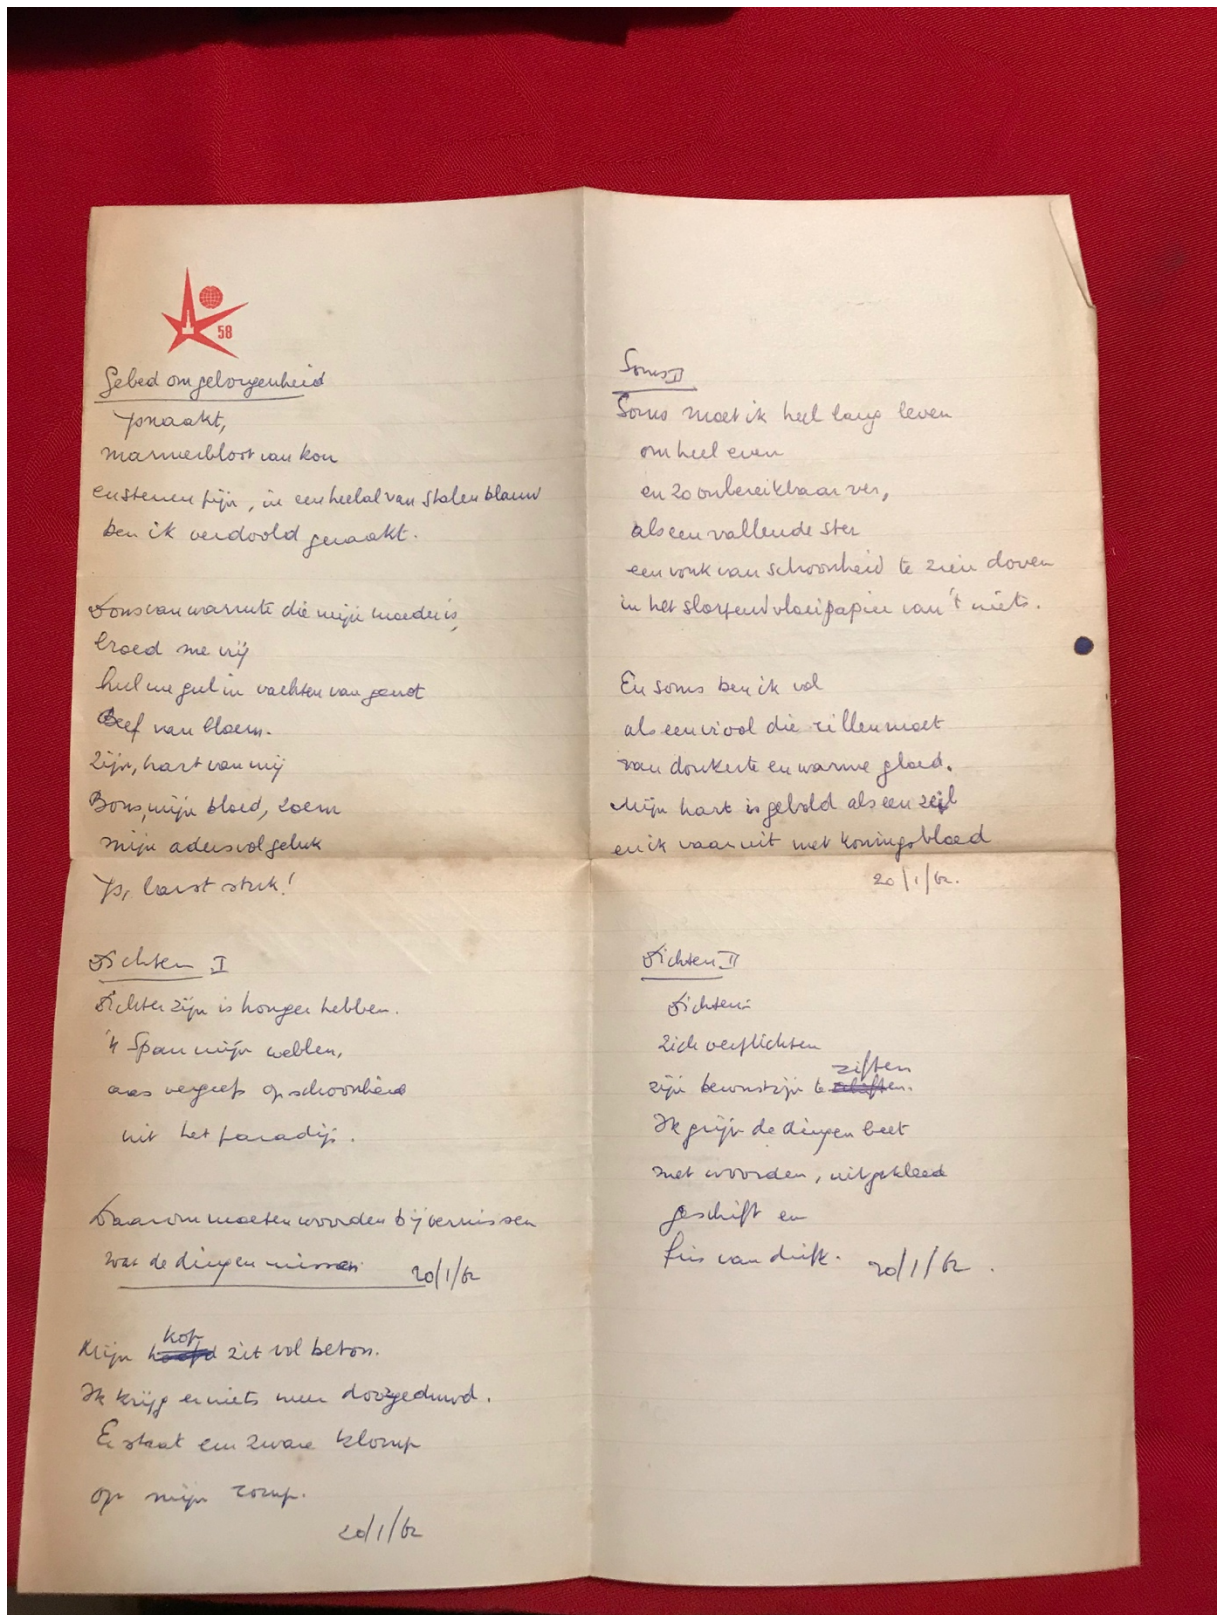 58
Gebed om geborgenheid
Spiernaakt,
marmerbloot van kou
en stenen pijn, in een heelal van stalen blauw
ben ik verdoold geraakt.
Dons van warmte die mijn moeder is,
broed me vrij
hul me gul in vachten van genot
Beef van bloem.
Zijn, hart van mij
Bons, mijn bloed, zoem
mijn aders vol geluk
Ja, barst stuk!
Dichten I
Dichter zijn is honger hebben.
'k Span mijn webben,
aas vergeefs op schoonheid
uit het paradijs.
Daarom moeten woorden bijvernissen
wat de dingen missen
20/1/62
Mijn kop zit vol beton.
Ik krijg er niets meer doorgeduwd.
Er staat een zware klomp
op mijn romp.
20/1/62
Soms II
Soms moet ik heel lang leven
om heel even
en zo onbereikbaar ver,
als een vallende ster
een vonk van schoonheid te zien doven
in het slorpend vloeipapier van 't niets.
En soms ben ik vol
als een viool die rillen moet
van donkerte en warme gloed.
Mijn hart is gebold als een zeil
en ik vaar uit met koningsbloed
20/1/62.
Dichten II
Dichten:
zich verplichten
zijn bewustzijn te ziften
Ik grijp de dingen beet
met woorden, uitgekleed
geschift en
fris van drift.
20/1/62.